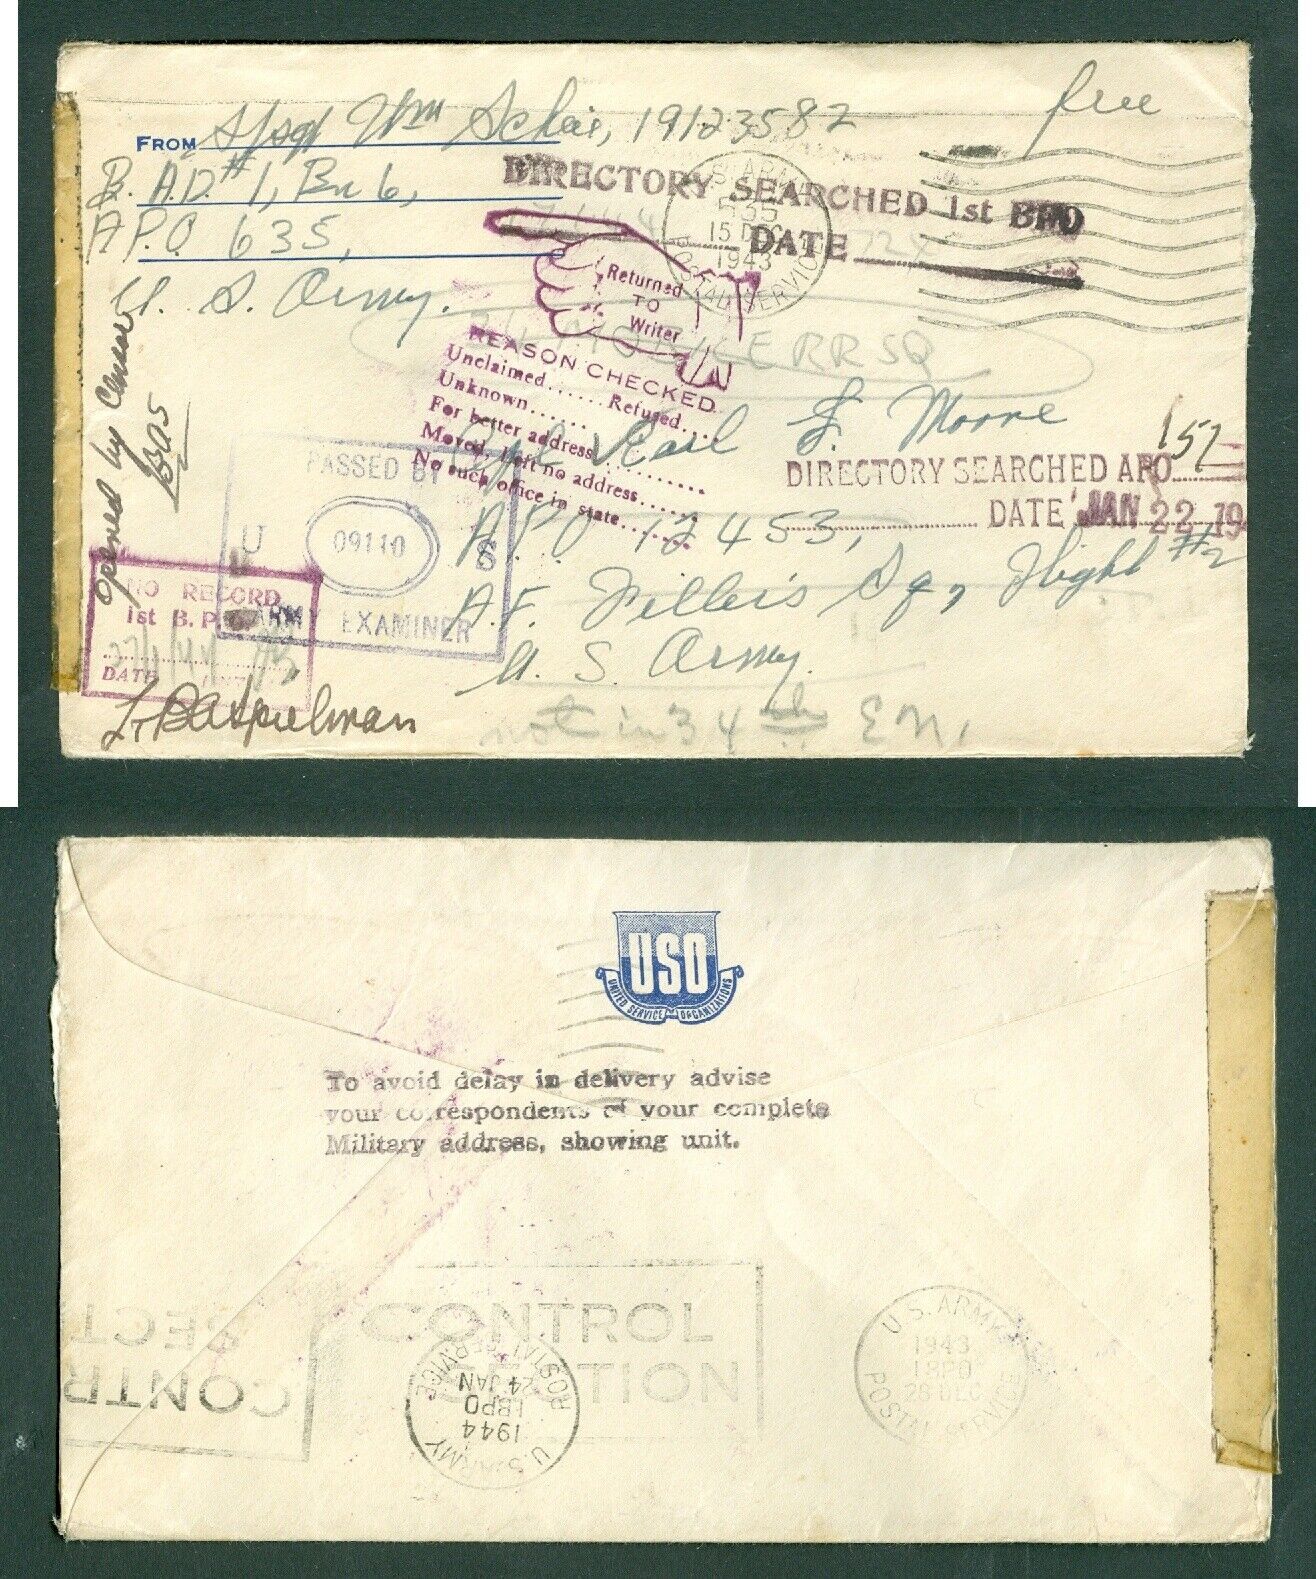 free
FROM S/Sgt Wm Schei, 19123582
B.A.D. #1, Bn 6,
A.P.O 635,
U. S. Army.
DIRECTORY SEARCHED 1st BPO
DATE
U.S. ARMY
635
15 DEC
1943
POSTAL SERVICE
Returned
TO
Writer
REASON CHECKED
Unclaimed...... Refused....
Unknown......
For better address.........
Moved, left no address......
No such office in state......
Cpl Karl F. Moore
A.P.O 12453,
A.F. Fillers Sq, Flight #2
U. S. Army.
not in 34th
DIRECTORY SEARCHED APO 157
DATE JAN 22 19
Opened by Censor
BAS
PASSED BY
U 09110 S
ARMY EXAMINER
NO RECORD
1st B.P.O.
27/1/44
DATE
Lt BASpielman
USO
UNITED SERVICE ORGANIZATIONS
To avoid delay in delivery advise
your correspondents of your complete
Military address, showing unit.
CONTROL
SECTION
CONTR
SECT
U.S. ARMY
1944
1BPO
24 JAN
POSTAL SERVICE
U.S. ARMY
1943
1BPO
POSTAL SERVICE